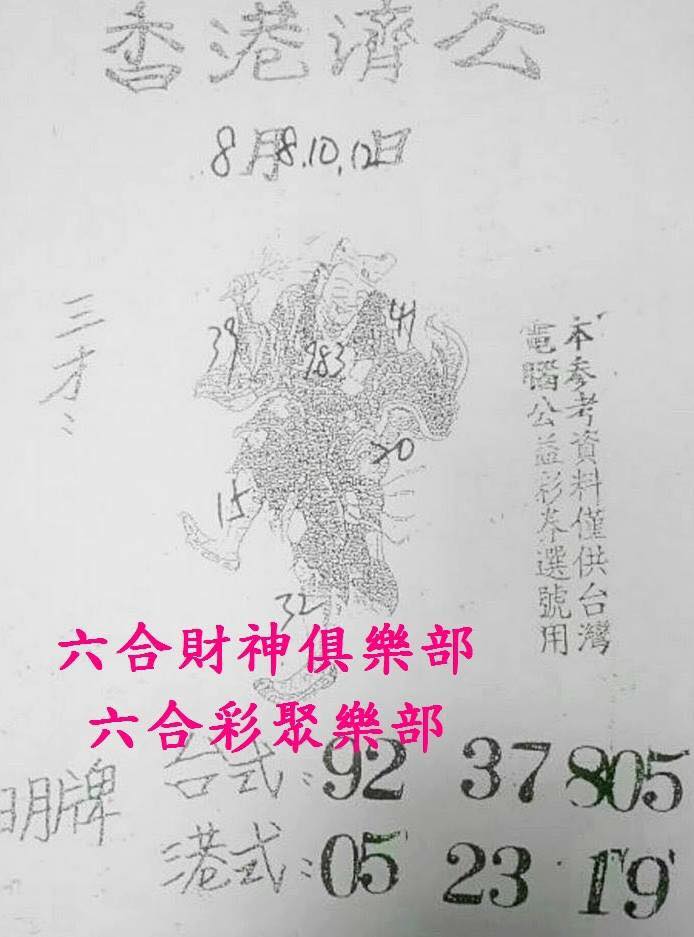 香港濟公
8月8.10.12日
三才:
39
983
41
20
15
32
本參考資料僅供台灣
電腦公益彩券選號用
六合財神俱樂部
六合彩聚樂部
明牌
台式:92 37 805
港式:05 23 19